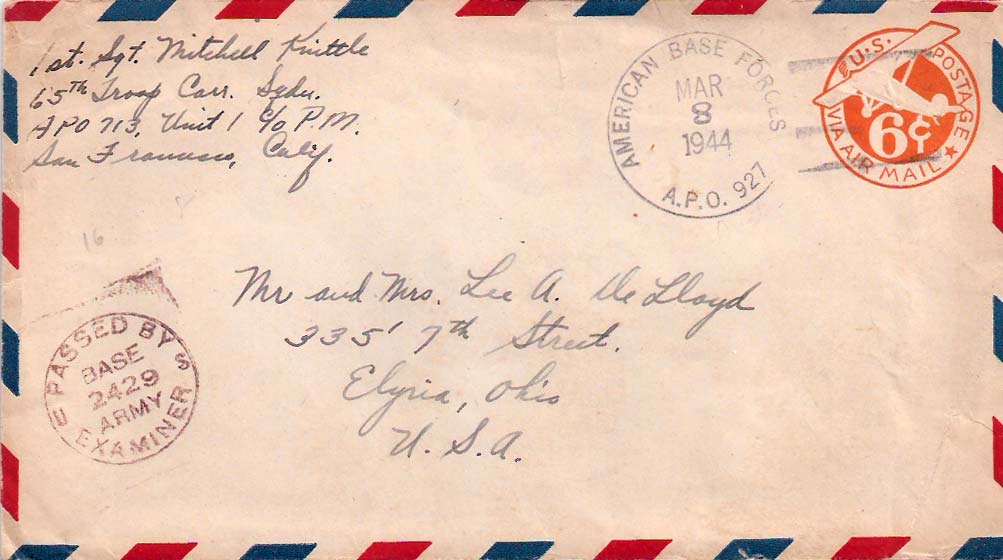 1st. Sgt. Mitchell Knittle
65th Troop Carr. Sqdn.
APO 713, Unit 1 c/o P.M.
San Francisco, Calif.
AMERICAN BASE FORCES
MAR
8
1944
A.P.O. 927
U.S. POSTAGE
6¢
VIA AIR MAIL
16
Mr and Mrs. Lee A. De Lloyd
335 7th Street.
Elyria, Ohio
U.S.A.
PASSED BY
BASE
2429
ARMY
EXAMINER
U S